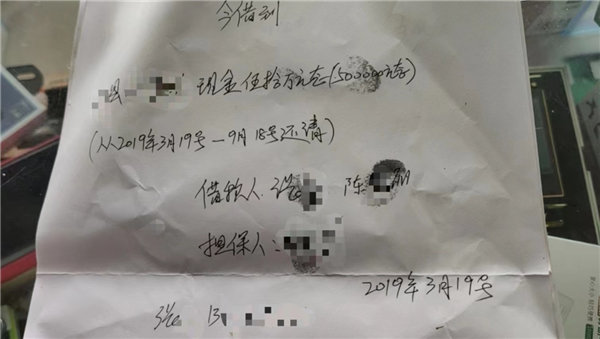 今借到
现金伍拾万元整(500000元整)
(从2019年3月19号—9月18号还清)
借款人:张 陈
担保人:
2019年3月19号
张 13